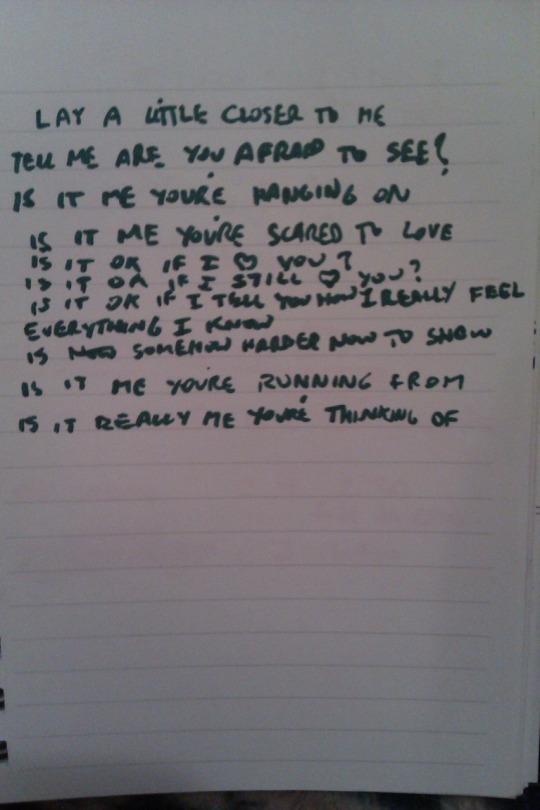 LAY A LITTLE CLOSER TO ME
TELL ME ARE YOU AFRAID TO SEE?
IS IT ME YOU'RE HANGING ON
IS IT ME YOU'RE SCARED TO LOVE
IS IT OK IF I ♡ YOU?
IS IT OK IF I STILL ♡ YOU?
IS IT OK IF I TELL YOU HOW I REALLY FEEL
EVERYTHING I KNOW
IS SOMEHOW HARDER NOW TO SHOW
IS IT ME YOURE RUNNING FROM
IS IT REALLY ME YOU'RE THINKING OF